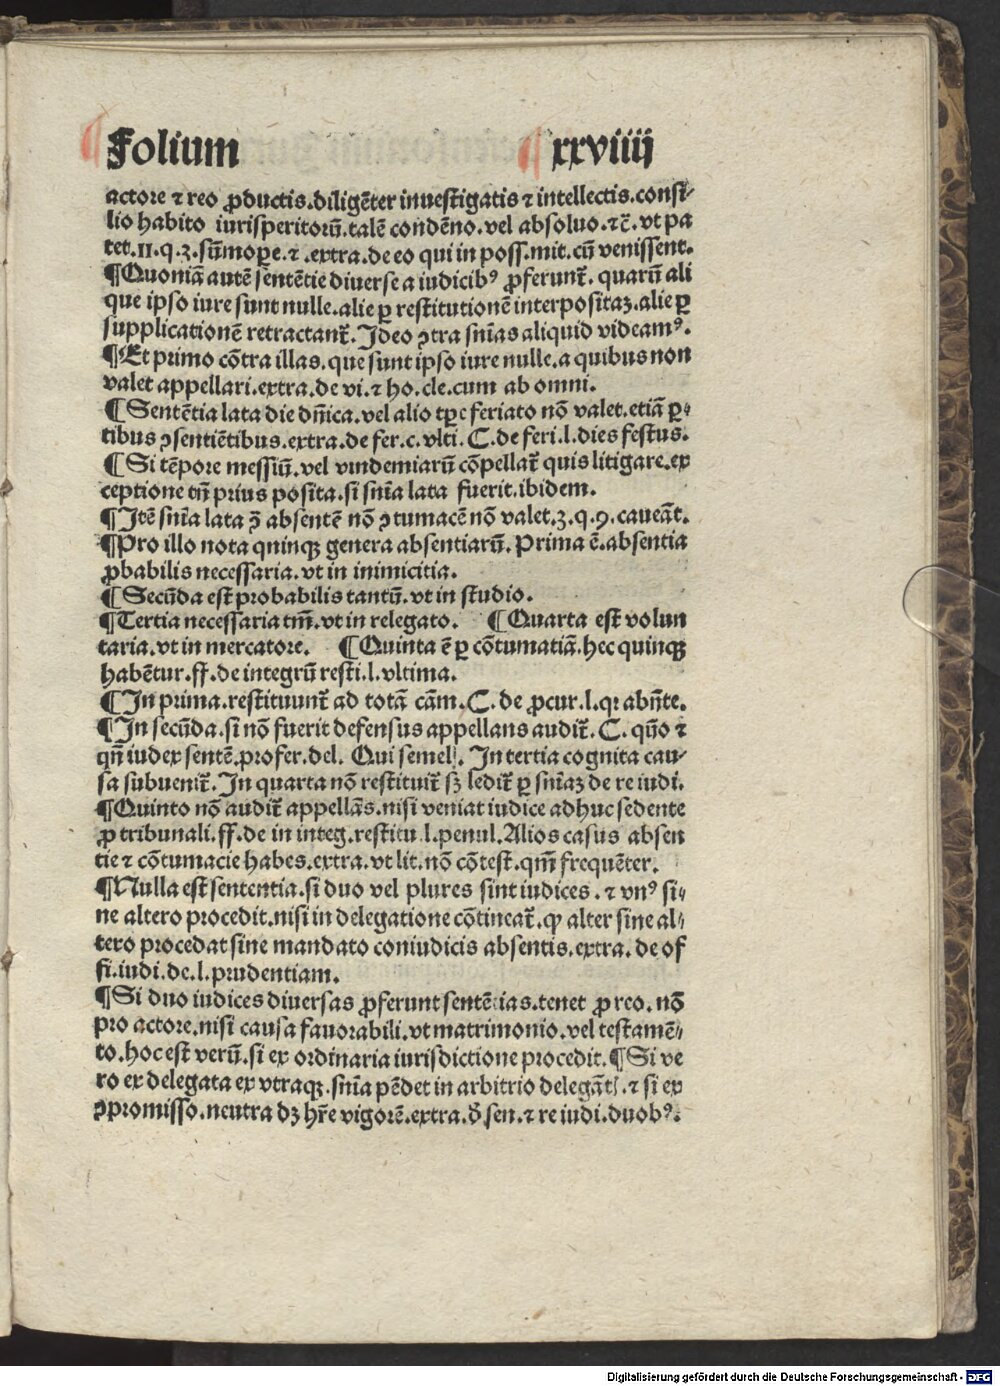 Folium xxviiij
actore ⁊ reo ꝓductis.diligēter inuestigatis ⁊ intellectis.consi⸗
lio habito iurisperitorū.talē condēno.vel absoluo.⁊c̄.vt pa
tet.II.q.3.sūmope.⁊.extra.de eo qui in poss.mit.cū venissent.
¶Quoniā autē sentētie diuerse a iudicibꝰ ꝓferunt̄. quarū ali
que ipso iure sunt nulle.alie ꝑ restitutionē interpositaꝫ.alie ꝑ
supplicationē retractant̄. Ideo ꝯtra sn̄ias aliquid videamꝰ.
¶Et primo cōtra illas. que sunt ipso iure nulle.a quibus non
valet appellari.extra.de vi.⁊ ho.cle.cum ab omni.
¶Sentētia lata die dn̄ica.vel alio tꝑe feriato nō valet.etiā ꝑ⸗
tibus ꝯsentiētibus.extra.de fer.c.vlti. C.de feri.l.dies festus.
¶Si tēpore messiū.vel vindemiarū cōpellat̄ quis litigare.ex
ceptione tn̄ prius posita.si sn̄ia lata fuerit.ibidem.
¶Itē sn̄ia lata ꝯ̄ absentē nō ꝯtumacē nō valet.3.q.9.caueāt.
¶Pro illo nota quinqꝫ genera absentiarū. Prima ē.absentia
ꝓbabilis necessaria.vt in inimicitia.
¶Secūda est probabilis tantū.vt in studio.
¶Tertia necessaria tm̄.vt in relegato. ¶Quarta est volun
taria.vt in mercatore. ¶Quinta ē ꝑ cōtumatiā.hec quinqꝫ
habētur.ff.de integrū resti.l.vltima.
¶In prima.restituunt̄ ad totā cām.C.de ꝓcur.l.qꝛ abn̄te.
¶In secūda.si nō fuerit defensus appellans audit̄. C. qūo ⁊
qn̄ iudex sentē.profer.del. Qui semel. In tertia cognita cau⸗
sa subuenit̄.In quarta nō restituit̄ sꝫ ledit̄ ꝑ sn̄iaꝫ de re iudi.
¶Quinto nō audit̄ appellās.nisi veniat iudice adhuc sedente
ꝓ tribunali.ff.de in integ.restitu.l.penul.Alios casus absen
tie ⁊ cōtumacie habes.extra.vt lit.nō cōtest.qm̄ frequēter.
¶Nulla est sententia.si duo vel plures sint iudices.⁊ vnꝰ si⸗
ne altero procedit.nisi in delegatione cōtineat̄.ꝙ alter sine al⸗
tero procedat sine mandato coniudicis absentis.extra. de of
fi.iudi.de.l.prudentiam.
¶Si duo iudices diuersas ꝓferunt sentētias.tenet ꝓ reo. nō
pro actore.nisi causa fauorabili.vt matrimonio.vel testamē⸗
to.hoc est verū.si ex ordinaria iurisdictione procedit.¶Si ve
ro ex delegata ex vtraqꝫ.sn̄ia pēdet in arbitrio delegāt.⁊ si ex
ꝯpromisso.neutra dꝫ hr̄e vigorē.extra.ō sen.⁊ re iudi.duobꝰ.
Digitalisierung gefördert durch die Deutsche Forschungsgemeinschaft - DFG